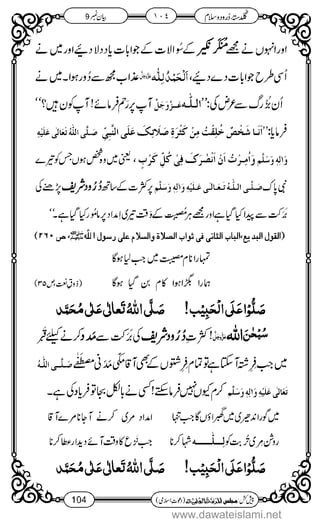 گلدستۂ درود و سلام
١٠٤
بیان نمبر 9
اور انہوں نے مجھے مُنکَر نکیر کے سُوالات کے جوابات یاد دِلا دیئے اور میں نے
اُسی طرح جوابات دے دیئے، اَلْحَمْدُ لِلّٰہ عزوجل عذاب مجھ سے دُور ہوا۔ میں نے
اُن بُزُرگ سے عرض کی: ’’اللہ عَزَّوَجَلَّ آپ پر رَحم فرمائے! آپ کون ہیں؟‘‘
فرمایا: ’’اَنَا شَخْصٌ خُلِقْتُ مِنْ كَثْرَةِ صَلَاتِكَ عَلَى النَّبِيِّ صَلَّی اللہُ تَعَالٰی عَلَیْہِ
وَاٰلِہٖ وَسَلَّم وَاُمِرْتُ اَنْ اَنْصُرَكَ فِيْ كُلِّ كَرْبٍ ، یعنی میں وہ شخص ہوں جس کو تیرے
نبیِ پاک صَلَّی اللہُ تَعَالٰی عَلَیْہِ وَاٰلِہٖ وَسَلَّم پر کثرت کے ساتھ دُرُود شریف پڑھنے کی
بَرَکت سے پیدا کیا گیا ہے اور مجھے ہر مصیبت کے وَقت تیری اِمداد پر مامُور کیا گیا ہے۔‘‘
(القول البدیع،الباب الثانی فی ثواب الصلاة والسلام علی رسول اللہ ﷺ، ص ٢٦٠)
تمہارا نام مصیبت میں جب لیا ہوگا
ہمارا بگڑا ہوا کام بن گیا ہوگا (ذوقِ نعت،ص۳۵)
صَلُّوْا عَلَی الْحَبِیْب! صَلَّی اللہُ تَعَالٰی عَلٰی مُحَمَّد
سُبْحٰنَ اللہ عزوجل! کثرتِ دُرُود شریف کی بَرَکت سے مدد کرنے کیلئے قَبْر
میں جب فِرِشتہ آسکتا ہے تو تمام فِرِشتوں کے بھی آقا مکی مَدَنی مُصْطَفٰے صَلَّی اللہُ
تَعَالٰی عَلَیْہِ وَاٰلِہٖ وَسَلَّم کرم کیوں نہیں فرما سکتے! کسی نے بالکل بجا تو فریاد کی ہے۔
میں گورِ اندھیری میں گھبراؤں گا جب تنہا امداد مری کرنے آ جانا مرے آقا
روشن مری تربت کو لِلّٰہ شہا کرنا جب نزع کا وقت آئے دیدار عطا کرنا
صَلُّوْا عَلَی الْحَبِیْب! صَلَّی اللہُ تَعَالٰی عَلٰی مُحَمَّد
104
پیش کش: مجلس المدینۃ العلمیۃ (دعوتِ اسلامی)
www.dawateislami.net